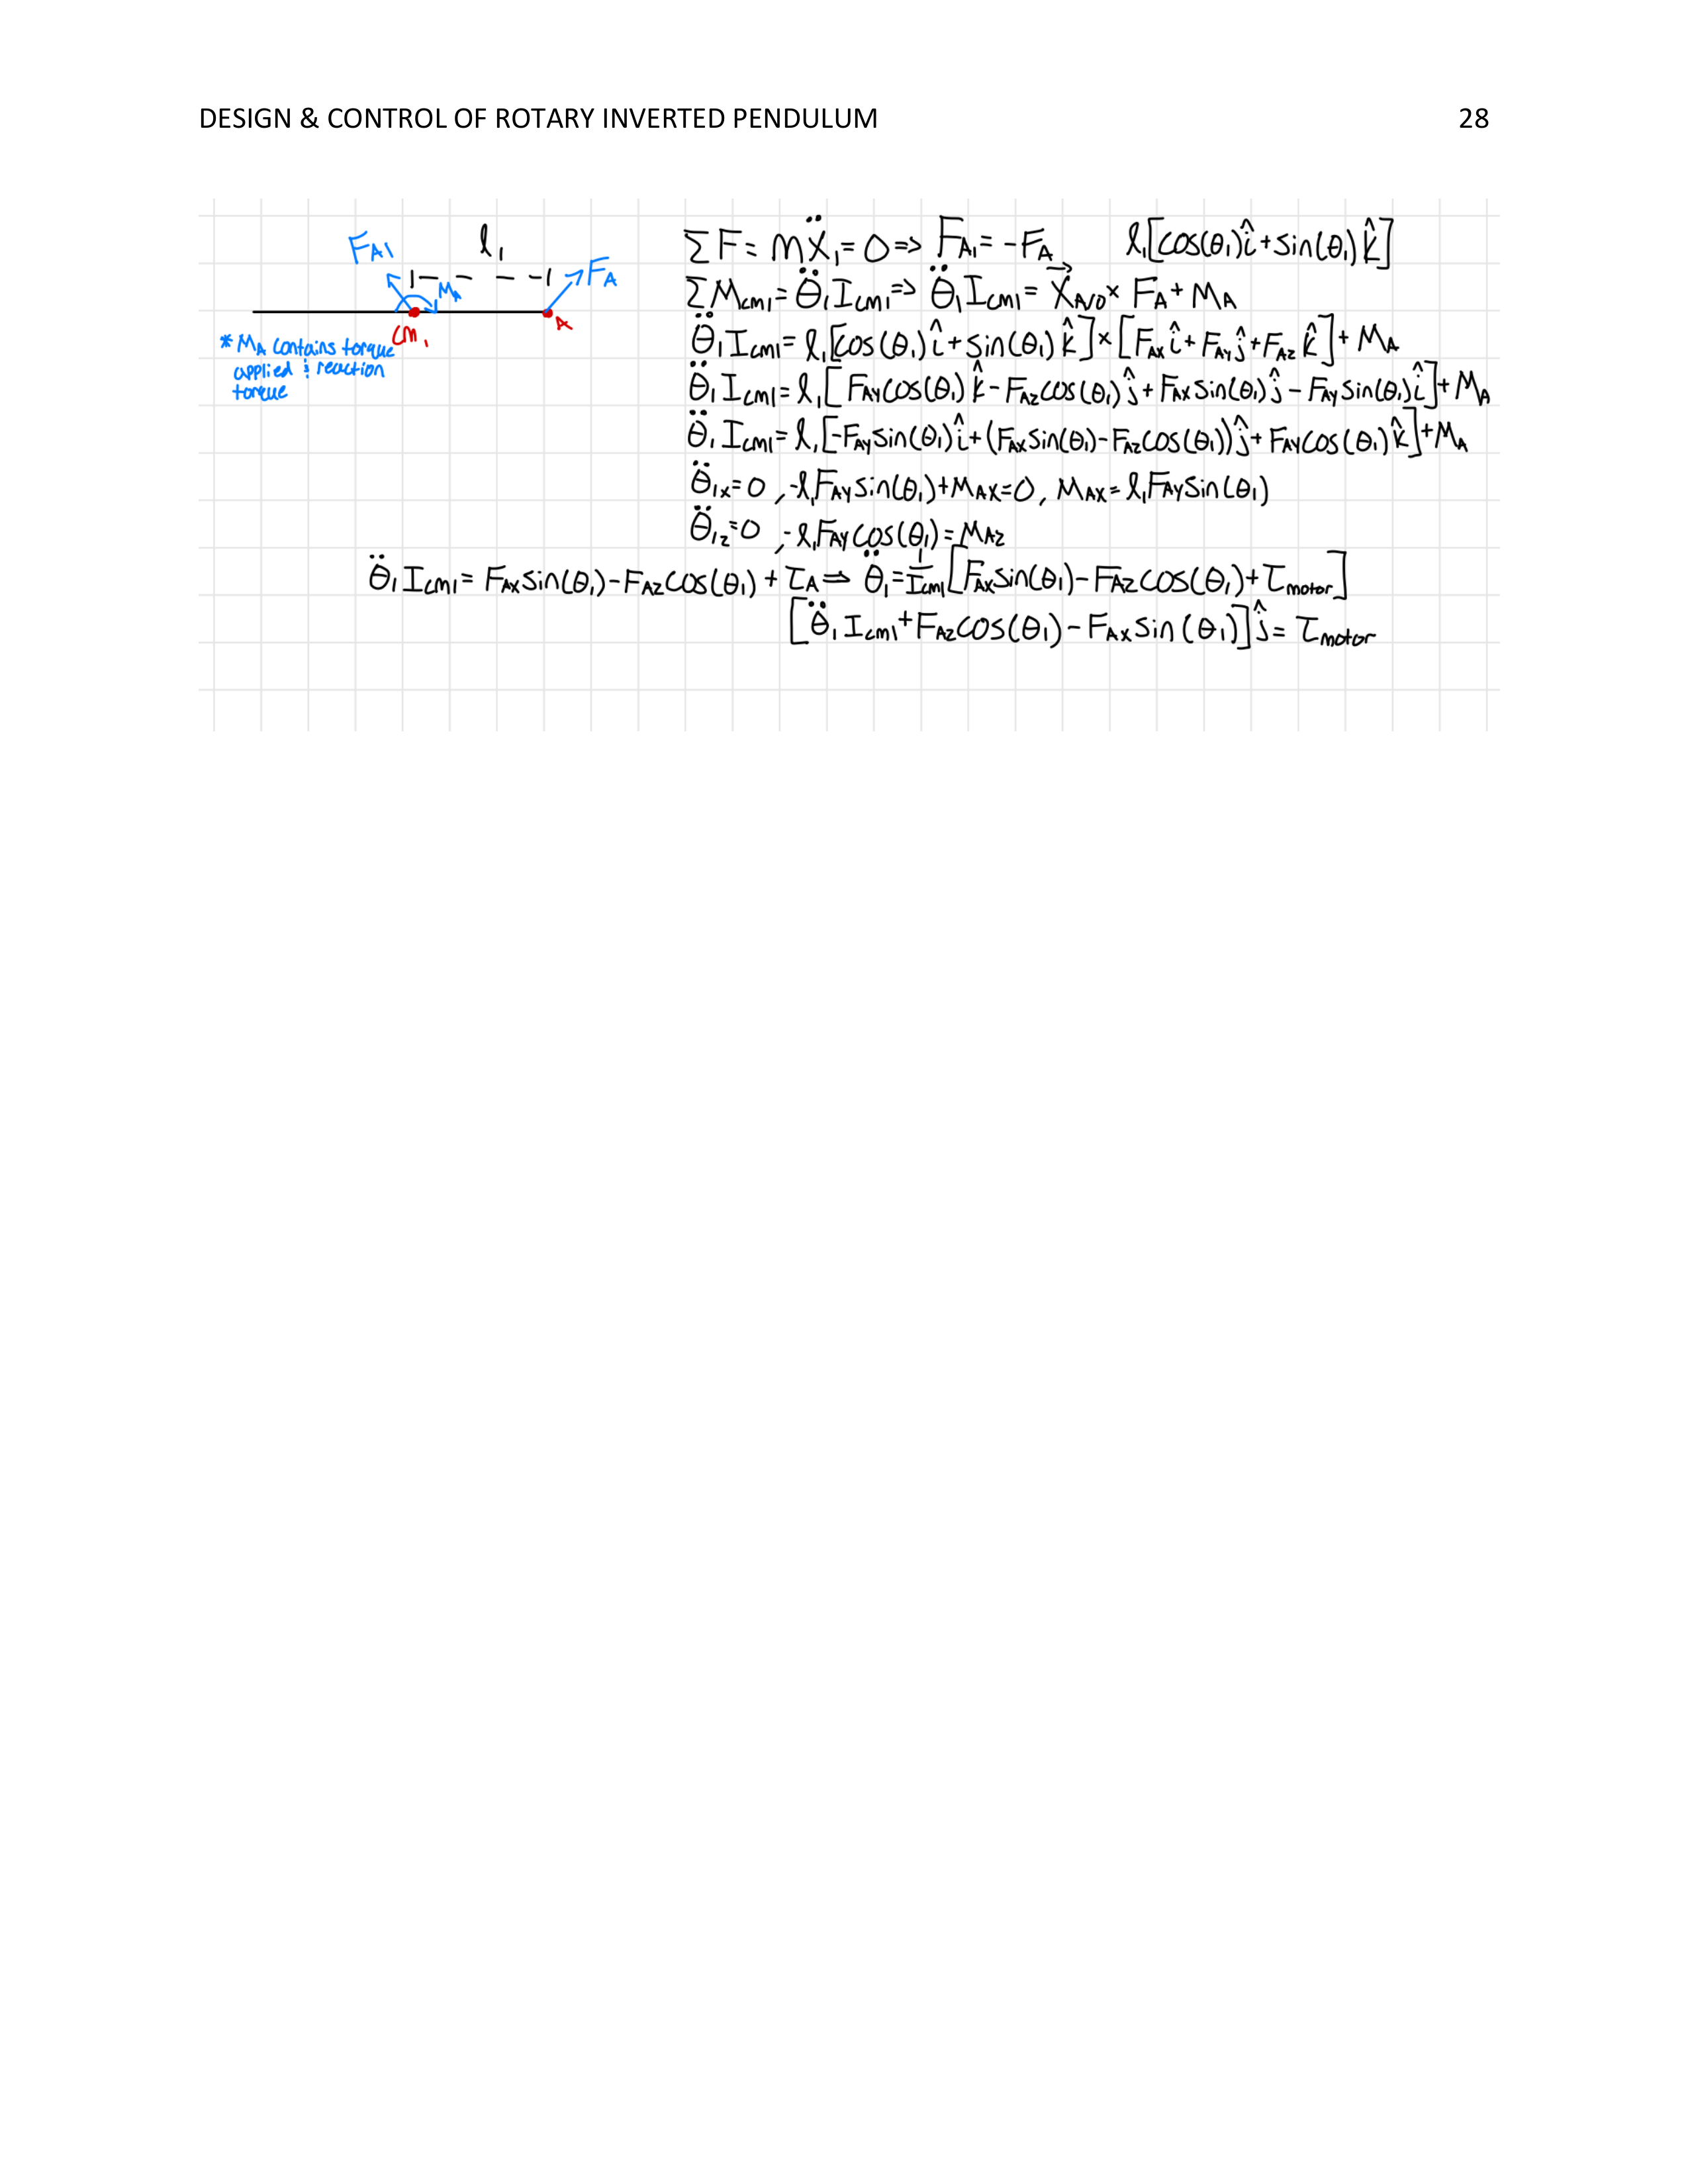 DESIGN & CONTROL OF ROTARY INVERTED PENDULUM 28
F_A1 l₁ F_A
M_A
cm₁ A
* M_A contains torque
applied & reaction
torque
ΣF = mẍ₁ = 0 => F_A1 = -F_A l₁[cos(θ₁)î + sin(θ₁)k̂]
ΣM_cm1 = θ̈₁I_cm1 => θ̈₁I_cm1 = x⃗_A/0 × F_A + M_A
θ̈₁I_cm1 = l₁[cos(θ₁)î + sin(θ₁)k̂] × [F_AX î + F_AY ĵ + F_AZ k̂] + M_A
θ̈₁I_cm1 = l₁[F_AY cos(θ₁)k̂ - F_AZ cos(θ₁)ĵ + F_AX sin(θ₁)ĵ - F_AY sin(θ₁)î] + M_A
θ̈₁I_cm1 = l₁[-F_AY sin(θ₁)î + (F_AX sin(θ₁) - F_AZ cos(θ₁))ĵ + F_AY cos(θ₁)k̂] + M_A
θ̈₁x = 0, -l₁F_AY sin(θ₁) + M_AX = 0, M_AX = l₁F_AY sin(θ₁)
θ̈₁z = 0, -l₁F_AY cos(θ₁) = M_AZ
θ̈₁I_cm1 = F_AX sin(θ₁) - F_AZ cos(θ₁) + τ_A => θ̈₁ = 1/I_cm1 [F_AX sin(θ₁) - F_AZ cos(θ₁) + τ_motor]
[θ̈₁I_cm1 + F_AZ cos(θ₁) - F_AX sin(θ₁)]ĵ = τ_motor